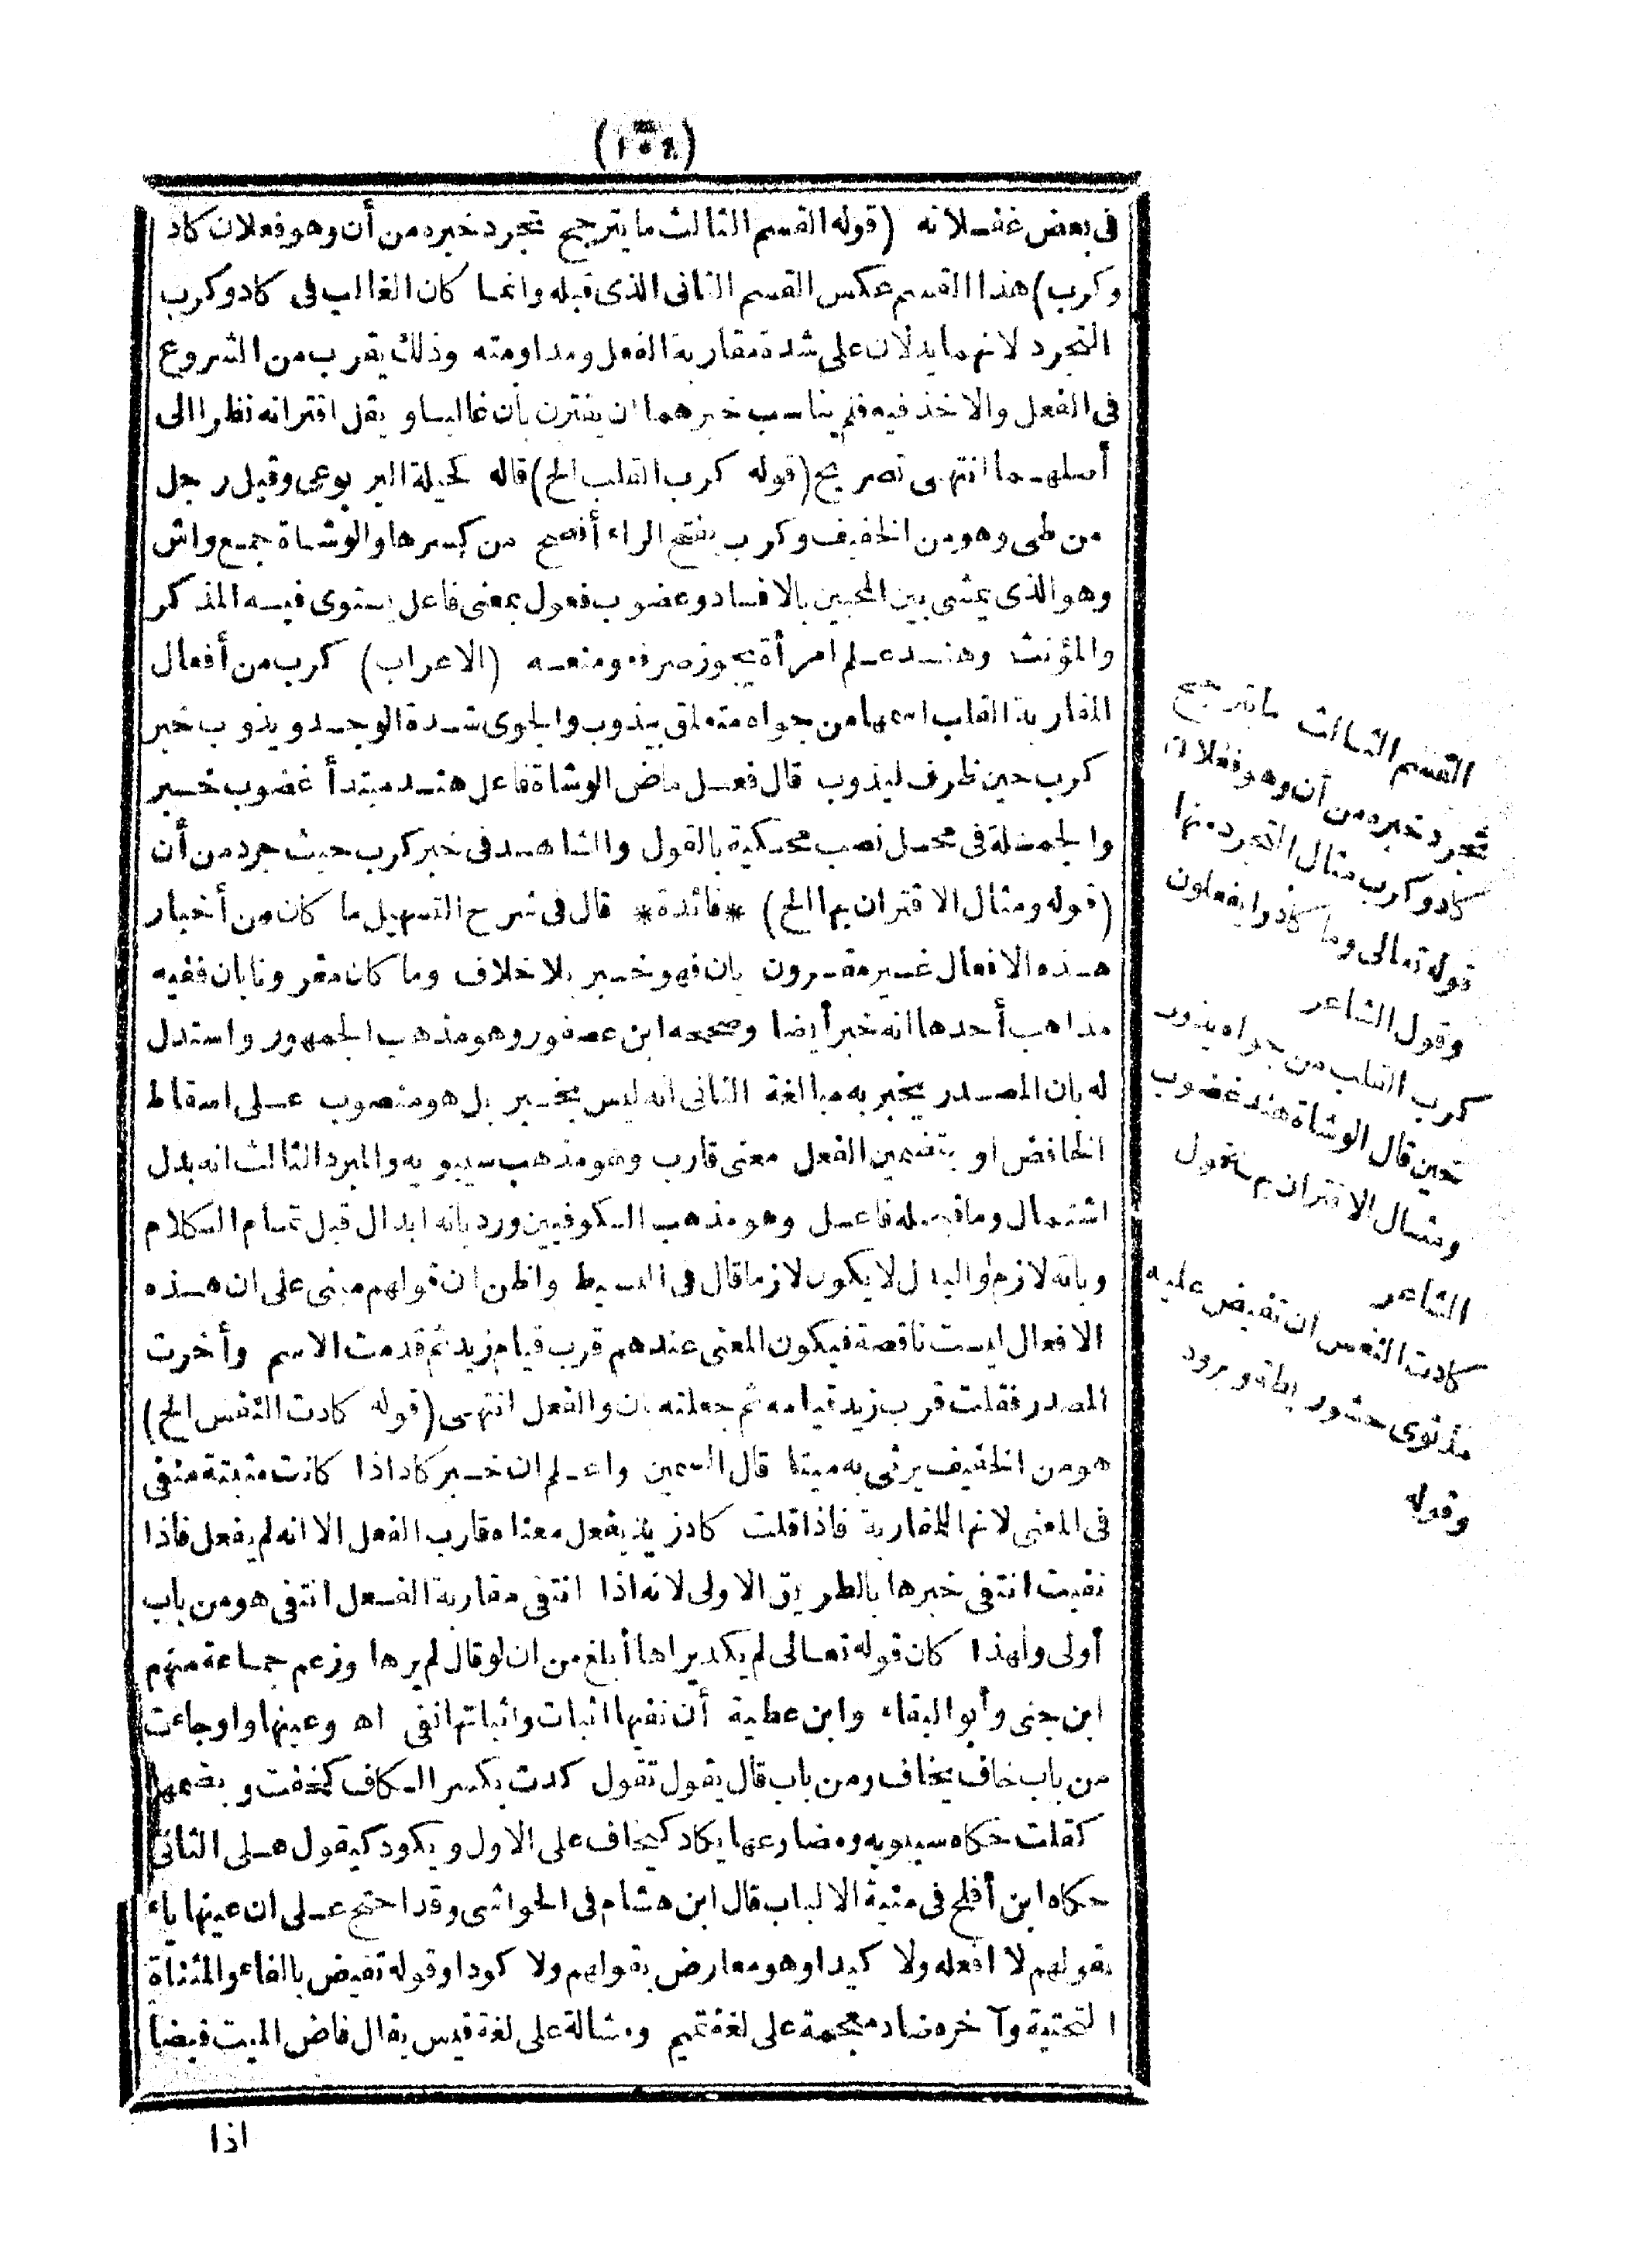 (١٠٨)
فى بعض غفلاته (قوله القسم الثالث ما يترجح تجرد خبره من أن وهو فعلان كاد
وكرب) هذا القسم عكس القسم الثانى الذى قبله وانما كان الغالب فى كاد وكرب
التجرد لانهما يدلان على شدة مقاربة الفعل ومداومته وذلك يقرب من الشروع
فى الفعل والاخذ فيه فلم يناسب خبرهما ان يقترن بأن غالبا ويقل اقترانه نظرا الى
أصلهما انتهى تصريح (قوله كرب القلب الخ) قاله كحيلة اليربوعى وقيل رجل
من طى وهو من الخفيف وكرب بفتح الراء أفصح من كسرها والوشاة جمع واش
وهو الذى يمشى بين المحبين بالافساد وغضوب فعول بمعنى فاعل يستوى فيه المذكر
والمؤنث وهند علم امرأة يجوز صرفه ومنعه (الاعراب) كرب من أفعال
المقاربة القلب اسمها من جواه متعلق بيذوب والجوى شدة الوجد ويذوب خبر
كرب حين ظرف ليذوب قال فعل ماض الوشاة فاعل هند مبتدأ غضوب خبر
والجملة فى محل نصب محكية بالقول والشاهد فى خبر كرب حيث جرد من أن
(قوله ومثال الاقتران بها الخ) *فائدة* قال فى شرح التسهيل ما كان من أخبار
هذه الافعال غير مقرون بان فهو خبر بلا خلاف وما كان مقرونا بان ففيه
مذاهب أحدها انه خبر أيضا وصححه ابن عصفور وهو مذهب الجمهور واستدل
له بان المصدر يخبر به مبالغة الثانى انه ليس بخبر بل هو منصوب على اسقاط
الخافض او بتضمين الفعل معنى قارب وهو مذهب سيبويه والمبرد الثالث انه بدل
اشتمال وما قبله فاعل وهو مذهب الكوفيين ورد بانه ابدال قبل تمام الكلام
وبانه لازم والبدل لا يكون لازما قال فى البسيط واظن ان قولهم مبنى على ان هذه
الافعال ليست ناقصة فيكون المعنى عندهم قرب قيام زيد ثم قدمت الاسم وأخرت
المصدر فقلت قرب زيد قيامه ثم جعلته بان والفعل انتهى (قوله كادت النفس الخ)
هو من الخفيف يرثى به ميتا قال السمين واعلم ان خبر كاد اذا كانت مثبتة منفى
فى المعنى لانها للمقاربة فاذا قلت كاد زيد يفعل معناه قارب الفعل الا انه لم يفعل فاذا
نفيت انتفى خبرها بالطريق الاولى لانه اذا انتفى مقاربة الفعل انتفى هو من باب
أولى ولهذا كان قوله تعالى لم يكد يراها أبلغ من ان لو قال لم يرها وزعم جماعة منهم
ابن جنى وأبو البقاء وابن عطية أن نفيها اثبات واثباتها نفى اه وعينها واو جاءت
من باب خاف يخاف ومن باب قال يقول تقول كدت بكسر الكاف كخفت وبضمها
كقلت حكاه سيبويه ومضارعها يكاد كيخاف على الاول ويكود كيقول على الثانى
حكاه ابن أفلح فى منية الالباب قال ابن هشام فى الحواشى وقد احتج على ان عينها ياء
بقولهم لا افعله ولا كيدا وهو معارض بقولهم ولا كودا وقوله تفيض بالفاء والمثناة
التحتية وآخره ضاد معجمة على لغة تميم ومشالة على لغة قيس يقال فاض الميت فيضا
اذا
القسم الثالث ما يترجح
تجرد خبره من أن وهو فعلان
كاد وكرب مثال التجرد منها
قوله تعالى وما كادوا يفعلون
وقول الشاعر
كرب القلب من جواه يذوب
حين قال الوشاة هند غضوب
ومثال الاقتران بها قول
الشاعر
كادت النفس ان تفيض عليه
مذ ثوى حشو ريطة وبرود
وقوله